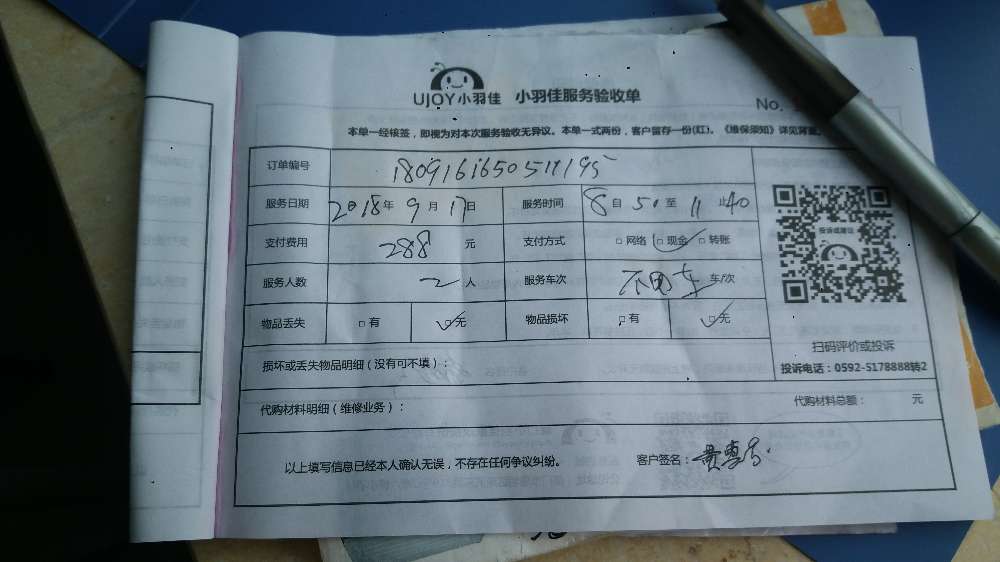 UJOY小羽佳 小羽佳服务验收单
No.
本单一经核签，即视为对本次服务验收无异议。本单一式两份，客户留存一份(红)。《维保须知》详见背面。
订单编号 180916165051195
服务日期 2018年9月17日 服务时间 8自50至11止40
支付费用 288元 支付方式 □网络 □现金 □转账
服务人数 二人 服务车次 不用车 车/次
物品丢失 □有 □无 物品损坏 □有 □无
投诉或建议
扫码评价或投诉
投诉电话：0592-5178888转2
损坏或丢失物品明细（没有可不填）：
代购材料明细（维修业务）： 代购材料总额： 元
以上填写信息已经本人确认无误，不存在任何争议纠纷。 客户签名：